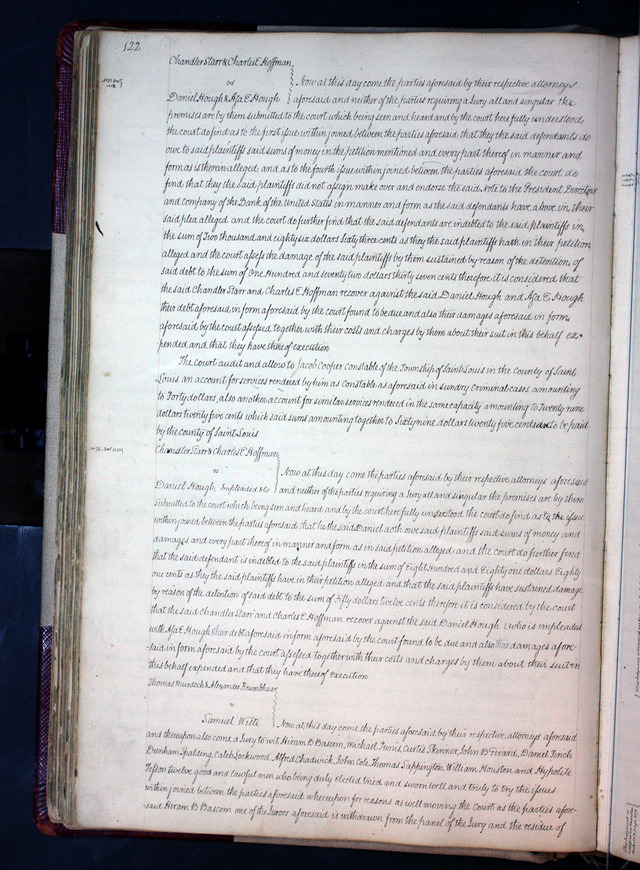 122
Chandler Starr & Charles E Hoffman
vs
Now at this day come the parties aforesaid by their respective attorneys
Daniel Hough & Asa E Hough
aforesaid and neither of the parties requiring a Jury all and singular the
premises are by them submitted to the court which being seen and heard and by the court here fully understood
the court do find as to the first issue within joined between the parties aforesaid that they the said defendants do
owe to said plaintiffs said sums of money in the petition mentioned and every part thereof in manner and
form as therein alleged; and as to the fourth issue within joined between the parties aforesaid the court do
find that they the said plaintiffs did not assign make over and endorse the said Note to the President Directors
and company of the Bank of the United States in manner and form as the said defendants have above in their
said plea alleged and the court do further find that the said defendants are indebted to the said plaintiffs in
the sum of Two thousand and eighty six dollars Sixty three cents as they the said plaintiffs hath in their petition
alleged and the court assess the damage of the said plaintiffs by them sustained by reason of the detention of
said debt to the sum of One Hundred and Seventy two dollars thirty seven cents therefore it is considered that
the said Chandler Starr and Charles E Hoffman recover against the said Daniel Hough and Asa E Hough
their debt aforesaid in form aforesaid by the court found to be due and also their damages aforesaid in form
aforesaid by the court assessed together with their costs and charges by them about their suit in this behalf ex-
pended and that they have thereof execution
The Court audit and allow to Jacob Cooper constable of the Township of Saint Louis in the county of Saint
Louis an account for services rendered by him as Constable as aforesaid in sundry criminal cases amounting
to Forty dollars, also another account for similar services rendered in the same capacity amounting to Twenty nine
dollars twenty five cents which said sums amounting together to Sixty nine dollars twenty five cents is to be paid
by the county of Saint Louis
Chandler Starr & Charles E. Hoffman
vs
Now at this day come the parties aforesaid by their respective attorneys aforesaid
Daniel Hough, impleaded &c
and neither of the parties requiring a Jury all and singular the premises are by them
submitted to the court which being seen and heard and by the court here fully understood the court do find as to the issue
within joined between the parties aforesaid that he the said Daniel doth owe said plaintiffs said sums of money and
damages and every part thereof in manner and form as in said petition alleged and the court do further find
that the said defendant is indebted to the said plaintiffs in the sum of Eight Hundred and Eighty one dollars Eighty
one cents as they the said plaintiffs have in their petition alleged and that the said plaintiffs have sustained damage
by reason of the detention of said debt to the sum of Fifty dollars twelve cents therefore it is considered by the court
that the said Chandler Starr and Charles E Hoffman recover against the said Daniel Hough (who is impleaded
with Asa E Hough their debt aforesaid in form aforesaid by the court found to be due and also their damages afore-
said in form aforesaid by the court assessed together with their costs and charges by them about their suit in
this behalf expended and that they have thereof execution
Thomas Murdock & Alexander
vs
Samuel Wilt
Now at this day come the parties aforesaid by their respective attorneys aforesaid
and thereupon also come a Jury to wit Hiram B Bascom, Michael Tunis, Curtis Skinner, John B Girard, Daniel Finch
Dunham Spalding, Caleb Lockwood, Alfred Chadwick, John Cole, Thomas Sappington, William Houston and Hypolite
Tesson twelve good and lawful men who being duly elected tried and sworn well and truly to try the issues
within joined between the parties aforesaid whereupon for reasons as well moving the Court as the parties afor-
said Hiram B Bascom one of the Jurors aforesaid is withdrawn from the panel of the Jury and the residue of